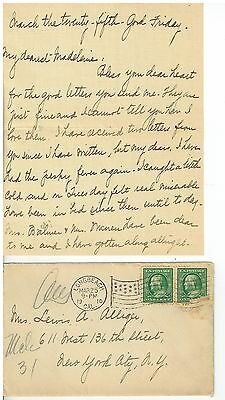 March the twenty-fifth - Good Friday.
My dearest Madeleine:
Bless you dear heart
for the good letters you send me. They are
just fine and I cannot tell you how I
love them. I have received two letters from
you since I have written, but my dear, I have
had the pesky fever again. I caught a little
cold and on Tuesday felt real miserable
have been in bed since then until to-day.
Mrs. and Mrs. have been dear
to me and I have gotten along alright.
LONG BEACH
MAR 25
9-PM
1910
CAL.
Mrs. Lewis A.
611 West 136th Street,
New York City, N.Y.
31